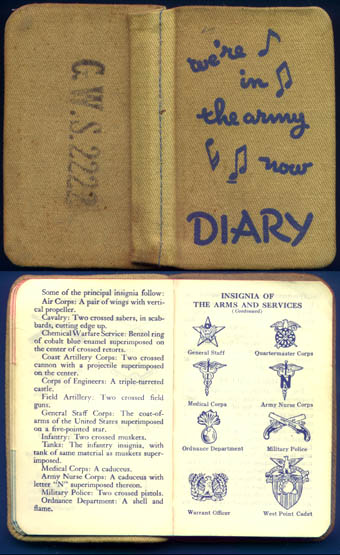 G.W.S. 2222
we're
in
the army
now
DIARY
Some of the principal insignia follow:
Air Corps: A pair of wings with verti-
cal propeller.
Cavalry: Two crossed sabers, in scab-
bards, cutting edge up.
Chemical Warfare Service: Benzol ring
of cobalt blue enamel superimposed on
the center of crossed retorts.
Coast Artillery Corps: Two crossed
cannon with a projectile superimposed
on the center.
Corps of Engineers: A triple-turreted
castle.
Field Artillery. Two crossed field
guns.
General Staff Corps: The coat-of-
arms of the United States superimposed
on a five-pointed star.
Infantry: Two crossed muskets.
Tanks: The infantry insignia, with
tank of same material as muskets super-
imposed.
Medical Corps: A caduceus.
Army Nurse Corps: A caduceus with
letter "N" superimposed thereon.
Military Police: Two crossed pistols.
Ordnance Department: A shell and
flame.
INSIGNIA OF
THE ARMS AND SERVICES
(Continued)
General Staff
Quartermaster Corps
N
Medical Corps
Army Nurse Corps
Ordnance Department
Military Police
Warrant Officer
West Point Cadet